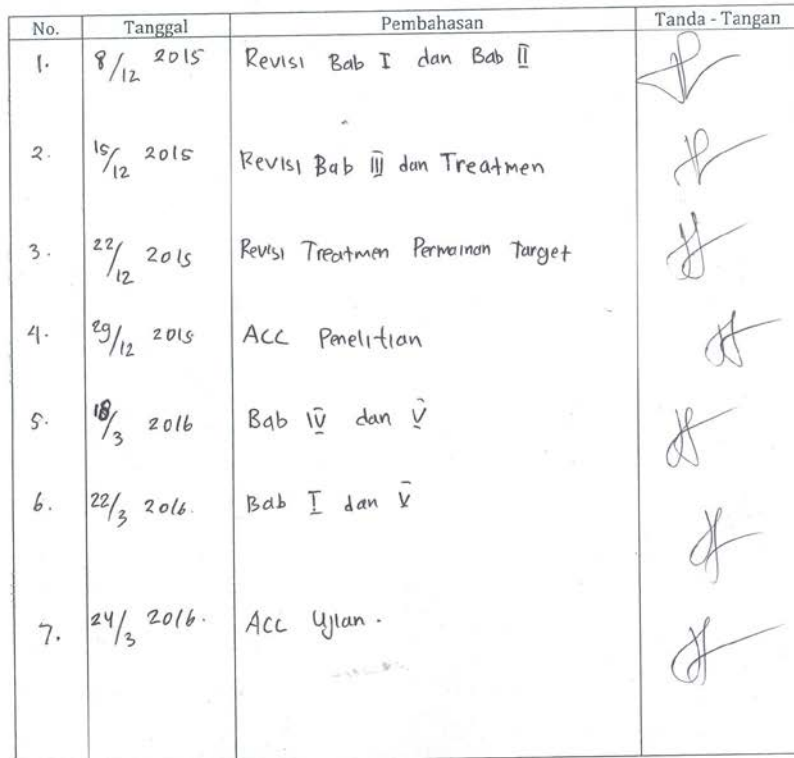 No. Tanggal Pembahasan Tanda - Tangan
1. 8/12 2015 Revisi Bab I dan Bab II
2. 15/12 2015 Revisi Bab III dan Treatmen
3. 22/12 2015 Revisi Treatmen Permainan Target
4. 29/12 2015 ACC Penelitian
5. 18/3 2016 Bab IV dan V
6. 22/3 2016. Bab I dan V
7. 24/3 2016. Acc Ujian.